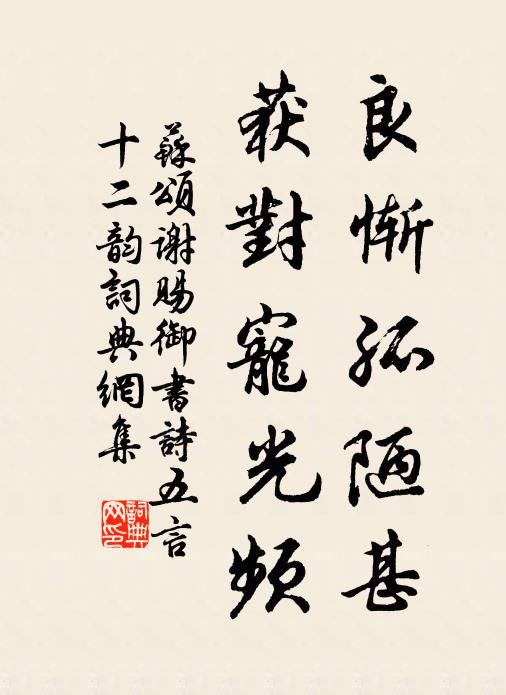 良慚孤陋甚
獲對寵光頻
蘇頌謝賜御書詩五言
十二韵詞典網集
詞典網印